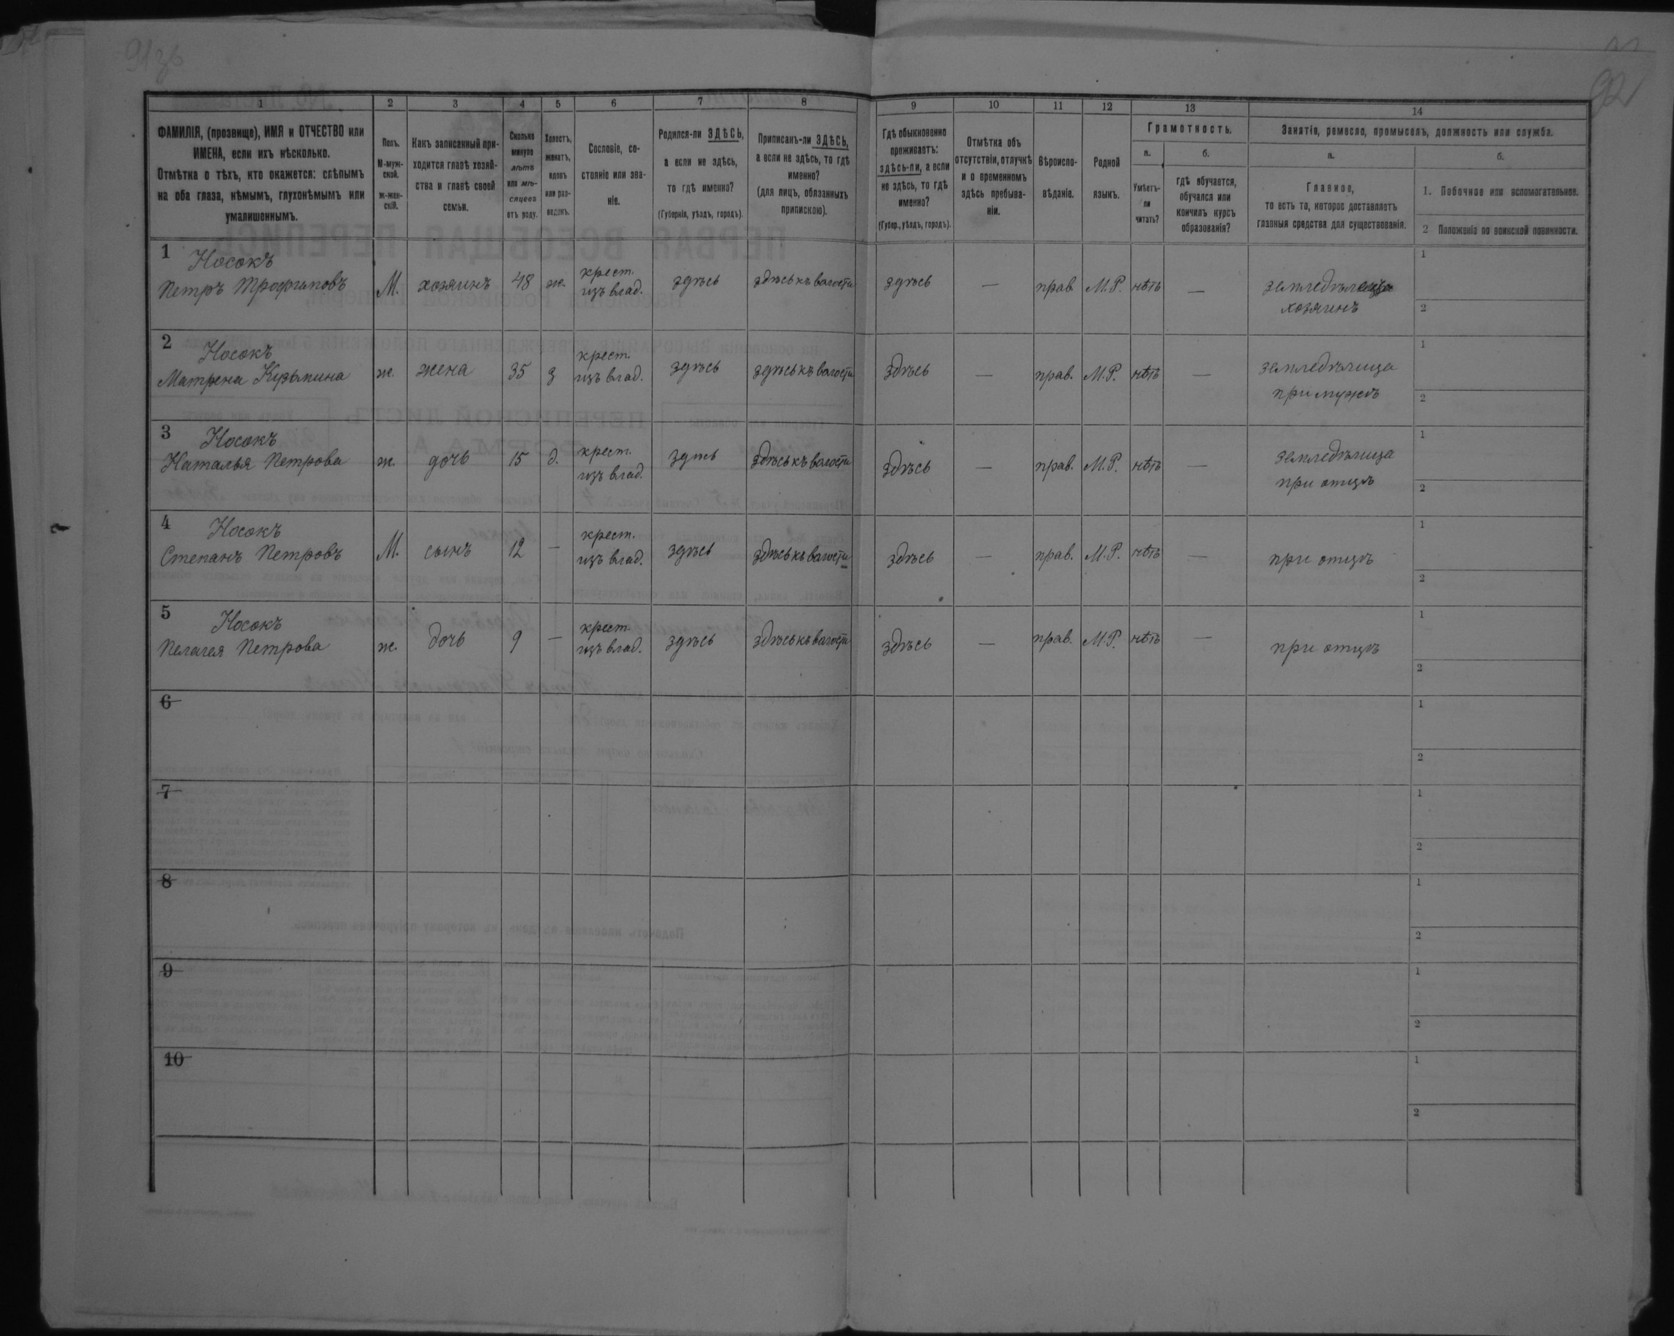 92
1
2
3
4
5
6
7
8
9
10
11
12
13
14
ФАМИЛІЯ, (прозвище), ИМЯ и ОТЧЕСТВО или
ИМЕНА, если ихъ нѣсколько.
Отмѣтка о тѣхъ, кто окажется: слѣпымъ
на оба глаза, нѣмымъ, глухонѣмымъ или
умалишеннымъ.
Полъ.
М-муж-
ской.
ж-жен-
скій.
Какъ записанный при-
ходится главѣ хозяй-
ства и главѣ своей
семьи.
Сколько
минуло
лѣтъ
или мѣ-
сяцевъ
отъ роду.
Холостъ,
женатъ,
вдовъ
или раз-
веденъ.
Сословіе, со-
стояніе или зва-
ніе.
Родился-ли ЗДѢСЬ,
а если не здѣсь,
то гдѣ именно?
(Губернія, уѣздъ, городъ).
Приписанъ-ли ЗДѢСЬ,
а если не здѣсь, то гдѣ
именно?
(для лицъ, обязанныхъ
припискою).
Гдѣ обыкновенно
проживаетъ:
здѣсь-ли, а если
не здѣсь, то гдѣ
именно?
(Губер., уѣздъ, городъ).
Отмѣтка объ
отсутствіи, отлучкѣ
и о временномъ
здѣсь пребыва-
ніи.
Вѣроиспо-
вѣданіе.
Родной
языкъ.
Грамотность.
а.
Умѣетъ-
ли
читать?
б.
гдѣ обучается,
обучался или
кончилъ курсъ
образованія?
Занятія, ремесло, промыселъ, должность или служба.
а.
Главное,
то есть то, которое доставляетъ
главныя средства для существованія.
б.
1. Побочное или вспомогательное.
2 Положеніе по воинской повинности.
1 Носокъ
Петръ Трофимовъ М. хозяинъ 48 ж. крест. изъ влад. здѣсь здѣсь къ волости здѣсь — прав М.Р. нѣтъ — хозяинъ
1
2
2 Носокъ
Матрена Кузьмина ж. жена 35 з крест. изъ влад. здѣсь здѣсь къ волости здѣсь — прав. М.Р. нѣтъ земледѣлица при мужѣ
1
2
3 Носокъ
Наталья Петрова ж. дочь 15 д. крест. изъ влад. здѣсь здѣсь къ волости здѣсь — прав. М.Р. нѣтъ — земледѣлица при отцѣ
1
2
4 Носокъ
Степанъ Петровъ М. сынъ 12 — крест. изъ влад. здѣсь здѣсь къ волости здѣсь — прав. М.Р. нѣтъ — при отцѣ
1
2
5 Носокъ
Пелагея Петрова ж. дочь 9 — крест. изъ влад. здѣсь здѣсь къ волости здѣсь — прав. М.Р. нѣтъ — при отцѣ
1
2
6
1
2
7
1
2
8
1
2
9
1
2
10
1
2